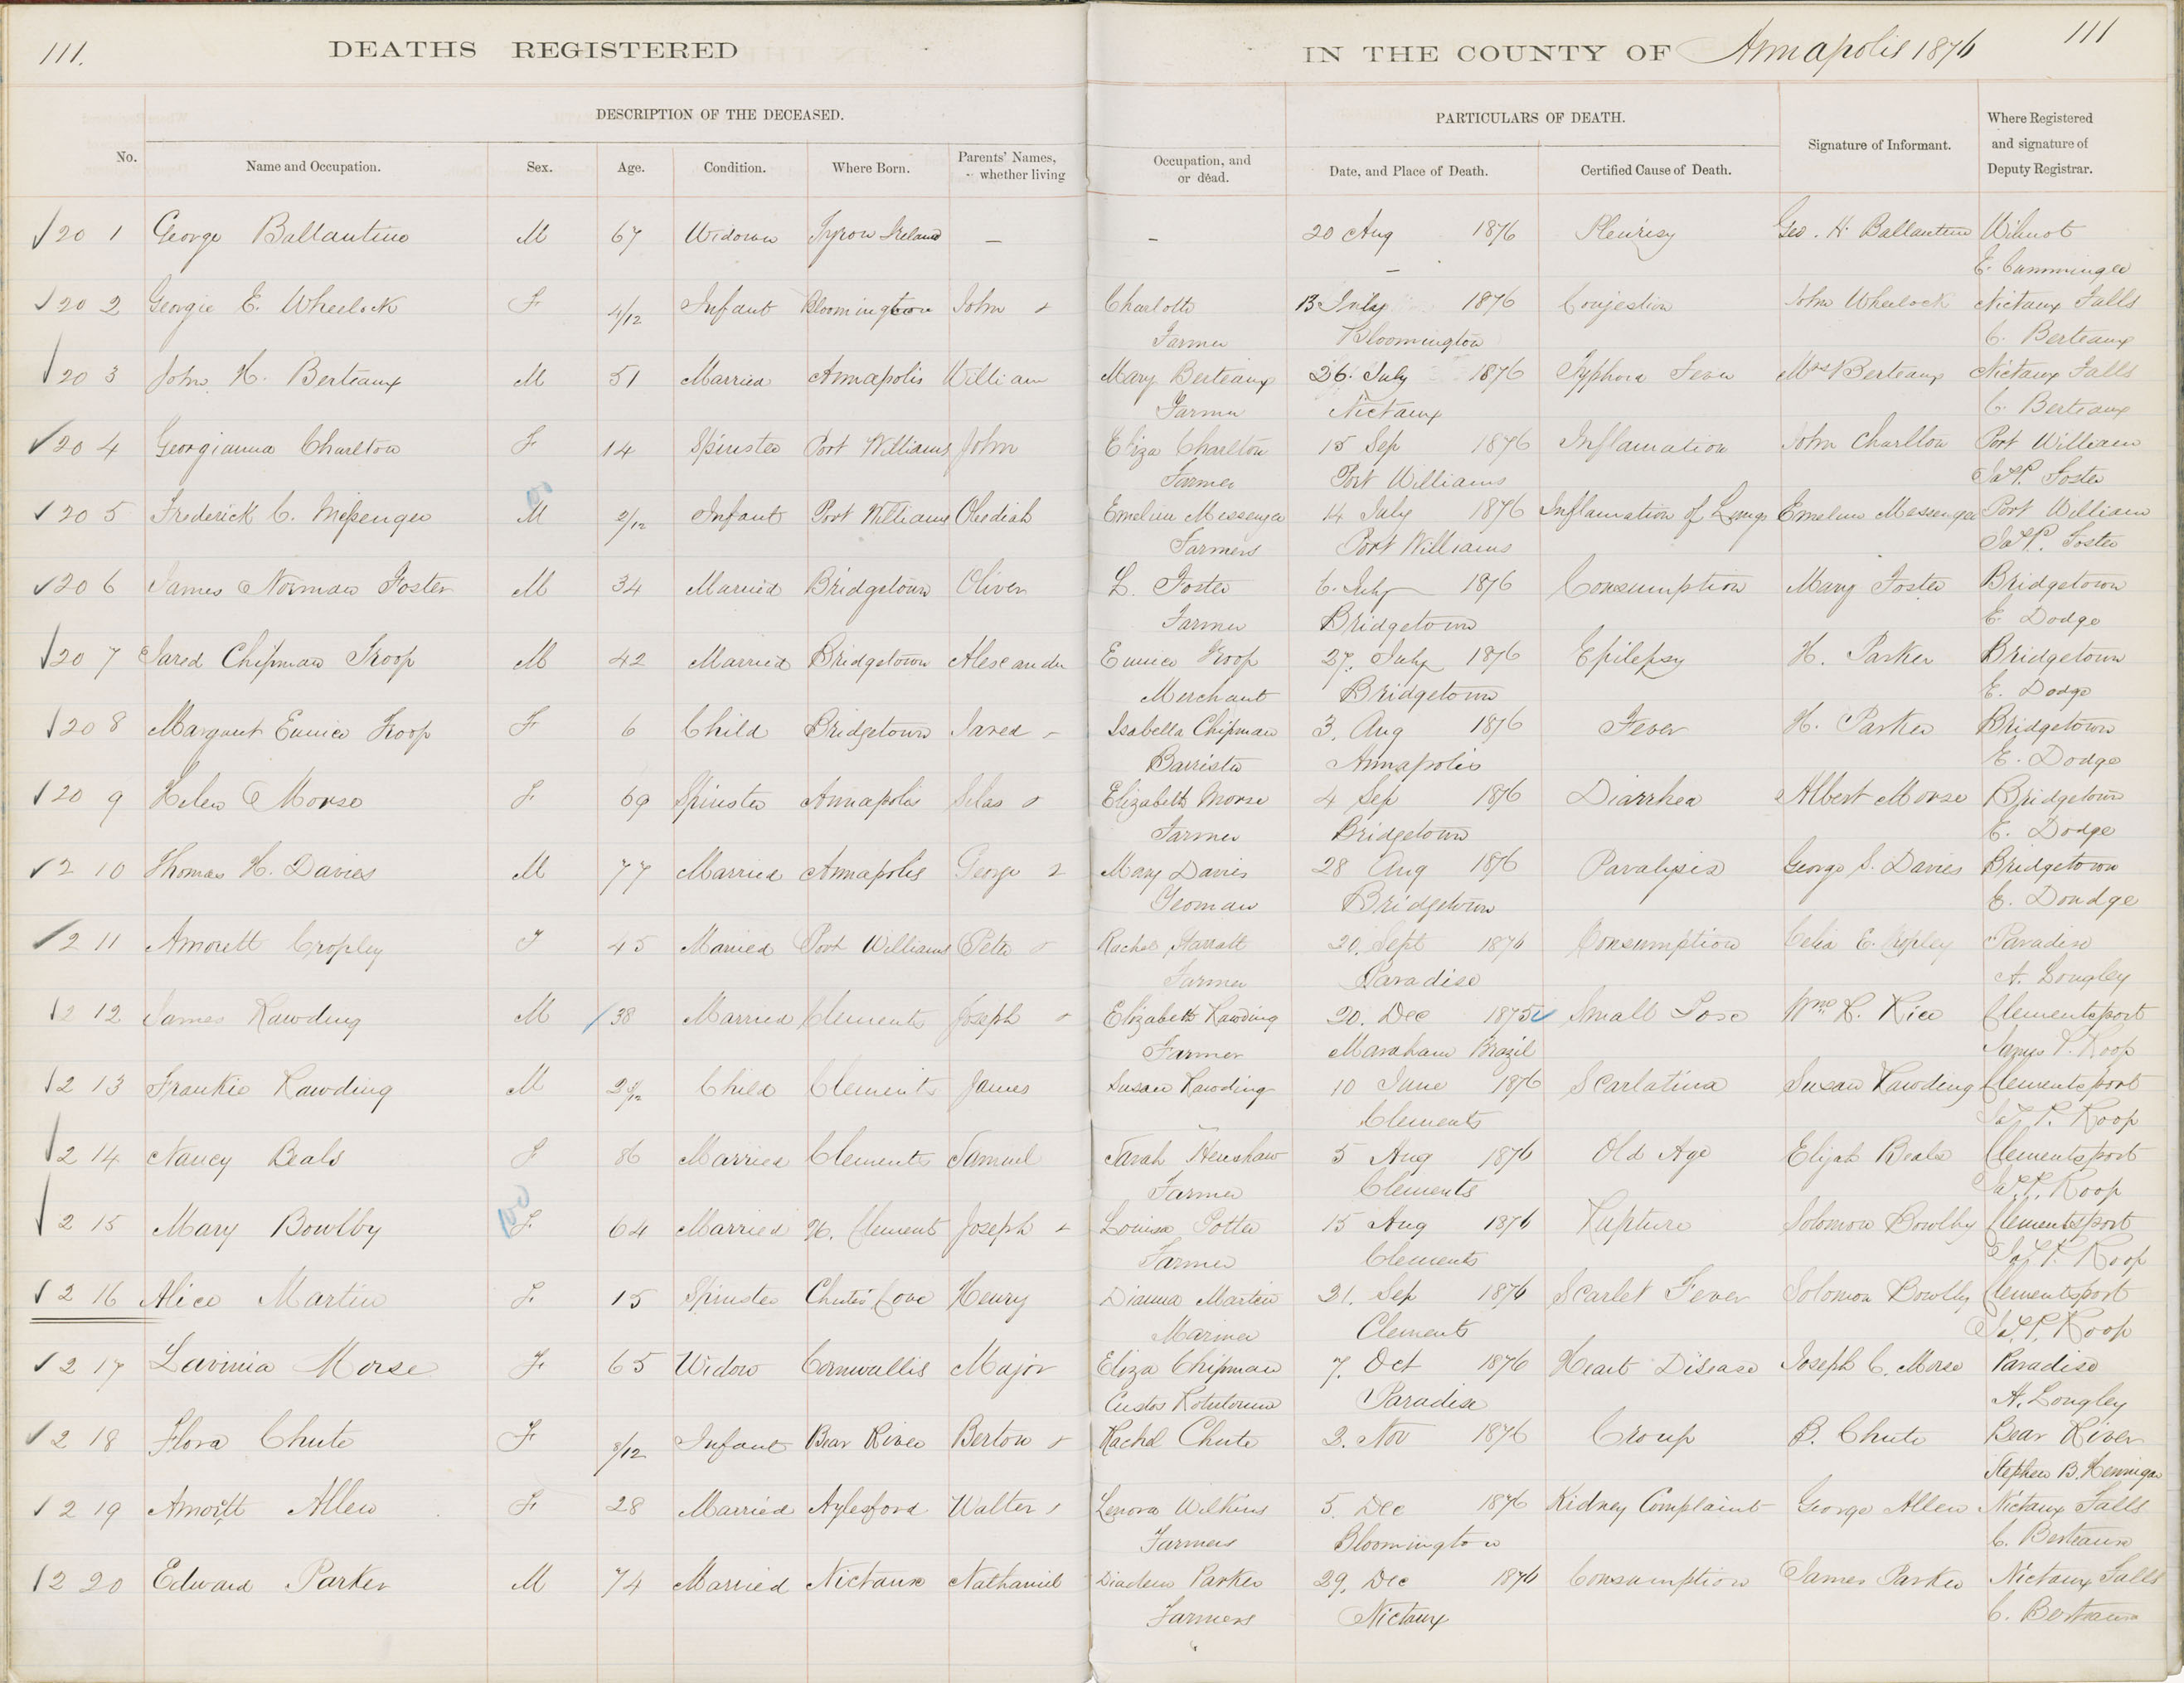 111.
DEATHS REGISTERED IN THE COUNTY OF Annapolis 1876
111
DESCRIPTION OF THE DECEASED.
PARTICULARS OF DEATH.
No. Name and Occupation. Sex. Age. Condition. Where Born. Parents' Names, whether living Occupation, and or dead. Date, and Place of Death. Certified Cause of Death. Signature of Informant. Where Registered and signature of Deputy Registrar.
20 1 George Ballantine M 67 Widower Tyrow Ireland — — 20 Aug 1876 Pleurisy Geo. H. Ballantine Wilmot
— E. Cumminger
20 2 Georgie E. Wheelock F 4/12 Infant Bloomington John & Charlotte 13 July 1876 Conjestion John Wheelock Nictaux Falls
Farmer Bloomington C. Berteaux
20 3 John H. Berteaux M 51 Married Annapolis William Mary Berteaux 26. July 1876 Typhoid Fever Mrs Berteaux Nictaux Falls
Farmer Nictaux C. Berteaux
20 4 Georgianna Charlton F 14 Spinster Port Williams John Eliza Charlton 15 Sep 1876 Inflamation John Charlton Port William
Farmer Port Williams Jas P. Foster
20 5 Frederick C. Messenger M 2/12 Infant Port Williams Obediah Emeline Messenger 14 July 1876 Inflamation of Lungs Emeline Messenger Port William
Farmers Port Williams Jas P. Foster
20 6 James Norman Foster M 34 Married Bridgetown Oliver L. Foster 6. July 1876 Consumption Mary Foster Bridgetown
Farmer Bridgetown E. Dodge
20 7 Jared Chipman Troop M 42 Married Bridgetown Alexander Eunice Troop 27. July 1876 Epilepsy H. Parker Bridgetown
Merchant Bridgetown E. Dodge
20 8 Margaret Eunice Troop F 6 Child Bridgetown Jared Isabella Chipman 3. Aug 1876 Fever H. Parker Bridgetown
Barrister Annapolis E. Dodge
20 9 Helen Morse F 69 Spinster Annapolis Silas & Elizabeth Morse 4 Sep 1876 Diarrhea Albert Morse Bridgetown
Farmer Bridgetown E. Dodge
2 10 Thomas H. Davies M 77 Married Annapolis George & Mary Davies 28 Aug 1876 Paralysis George S. Davies Bridgetown
Yeoman Bridgetown E. Doudge
2 11 Amorett Cropley F 45 Married Port Williams Peter & Rachel Starratt 20. Sept 1876 Consumption Celia E. Cropley Paradise
Farmer Paradise A. Longley
2 12 James Rawding M 38 Married Clements Joseph & Elizabeth Rawding 20. Dec 1875 Small Pox Wm R. Rice Clementsport
Farmer Maraham Brazil James P. Roop
2 13 Frankie Rawding M Child Clements James Susan Rawding 10 June 1876 Scarlatina Susan Rawding Clementsport
Clements Jas P. Roop
2 14 Nancy Beals F 86 Married Clements Samuel Sarah Henshaw 5 Aug 1876 Old Age Elijah Beals Clementsport
Farmer Clements Jas. P. Roop
2 15 Mary Bowlby F. 64 Married Clement Joseph & Louisa Potter 15 Aug 1876 Rupture Solomon Bowlby Clementsport
Farmer Clements Jas P. Roop
2 16 Alice Martin F. 15 Spinster Chutes Cove Henry Dianna Martin 21. Sep 1876 Scarlet Fever Solomon Bowlby Clementsport
Mariner Clements Jas. P. Roop
2 17 Lavinia Morse F 65 Widow Cornwallis Major Eliza Chipman 7. Oct 1876 Heart Disease Joseph C. Morse Paradise
Custos Rotulorum Paradise A. Longley
2 18 Flora Chute F 8/12 Infant Bear River Berton & Rachel Chute 2. Nov 1876 Croup B. Chute Bear River
Stephen B. Hennigar
2 19 Amorett Allen F 28 Married Aylesford Walter & Lenora Wilkins 5. Dec 1876 Kidney Complaint George Allen Nictaux Falls
Farmers Bloomington C. Berteaux
2 20 Edward Parker M 74 Married Nictaux Nathaniel Parker 29. Dec 1876 Consumption James Parker Nictaux Falls
Farmers Nictaux C. Berteaux